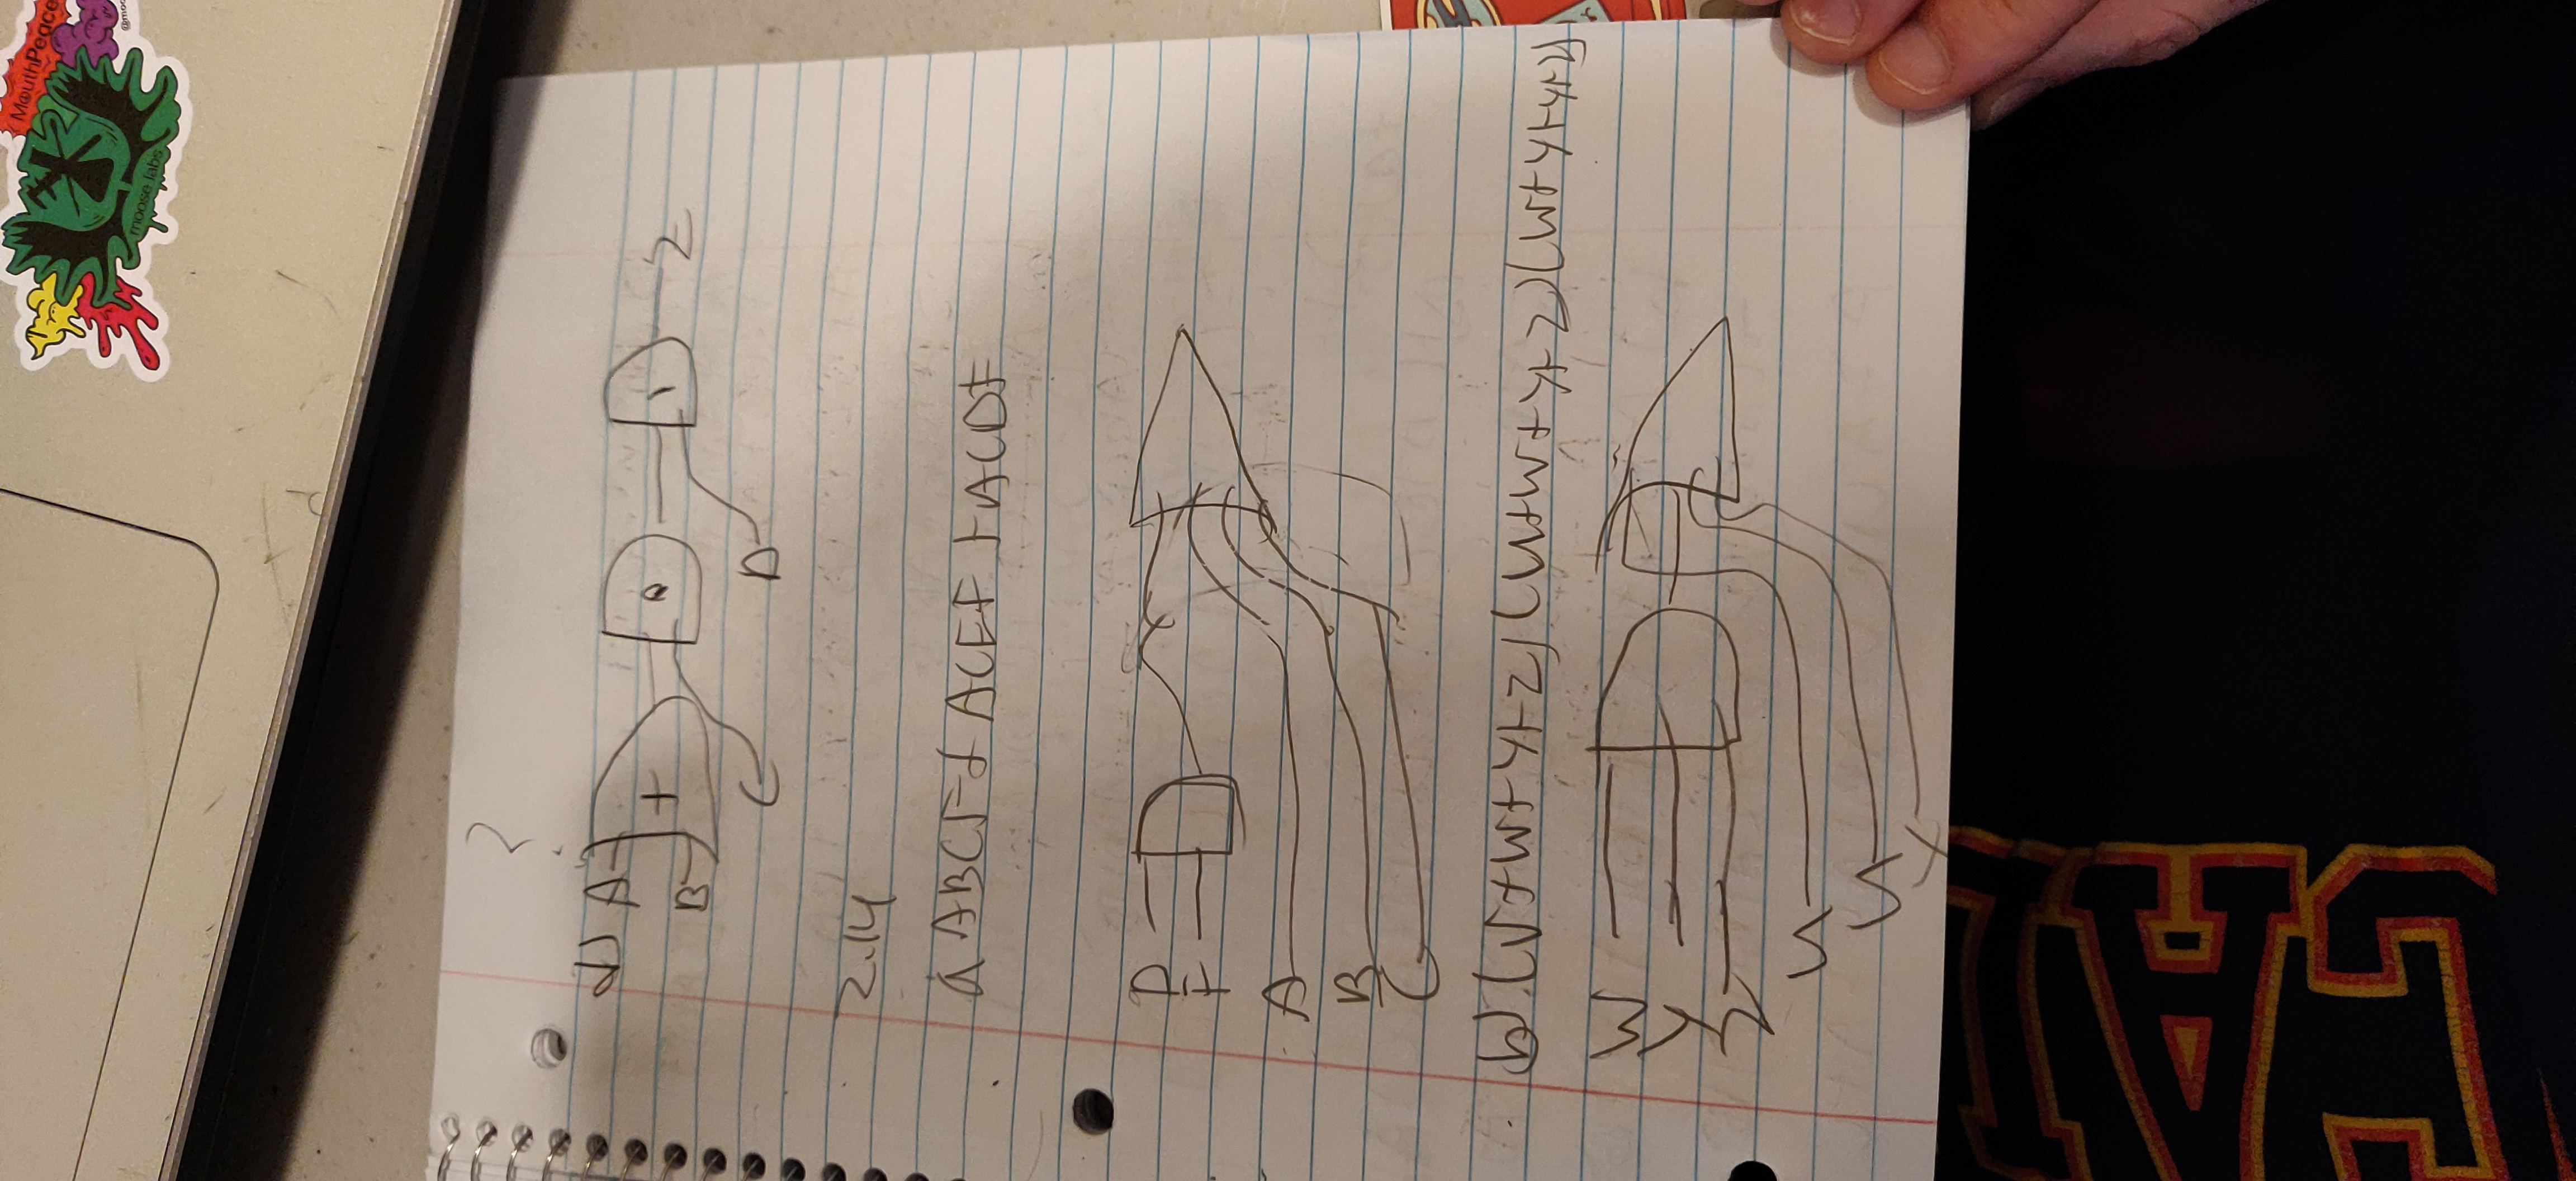 MouthPeace
moose labs
?
d) A
+
B
C
D
Z
2.14
a ABCF + ACEF + ACDF
D
F
A
B
C
b) (V+W+Y+Z)(U+W+Y+Z)(W+Y+Y+Z)
W
Y
Z
U
U
X